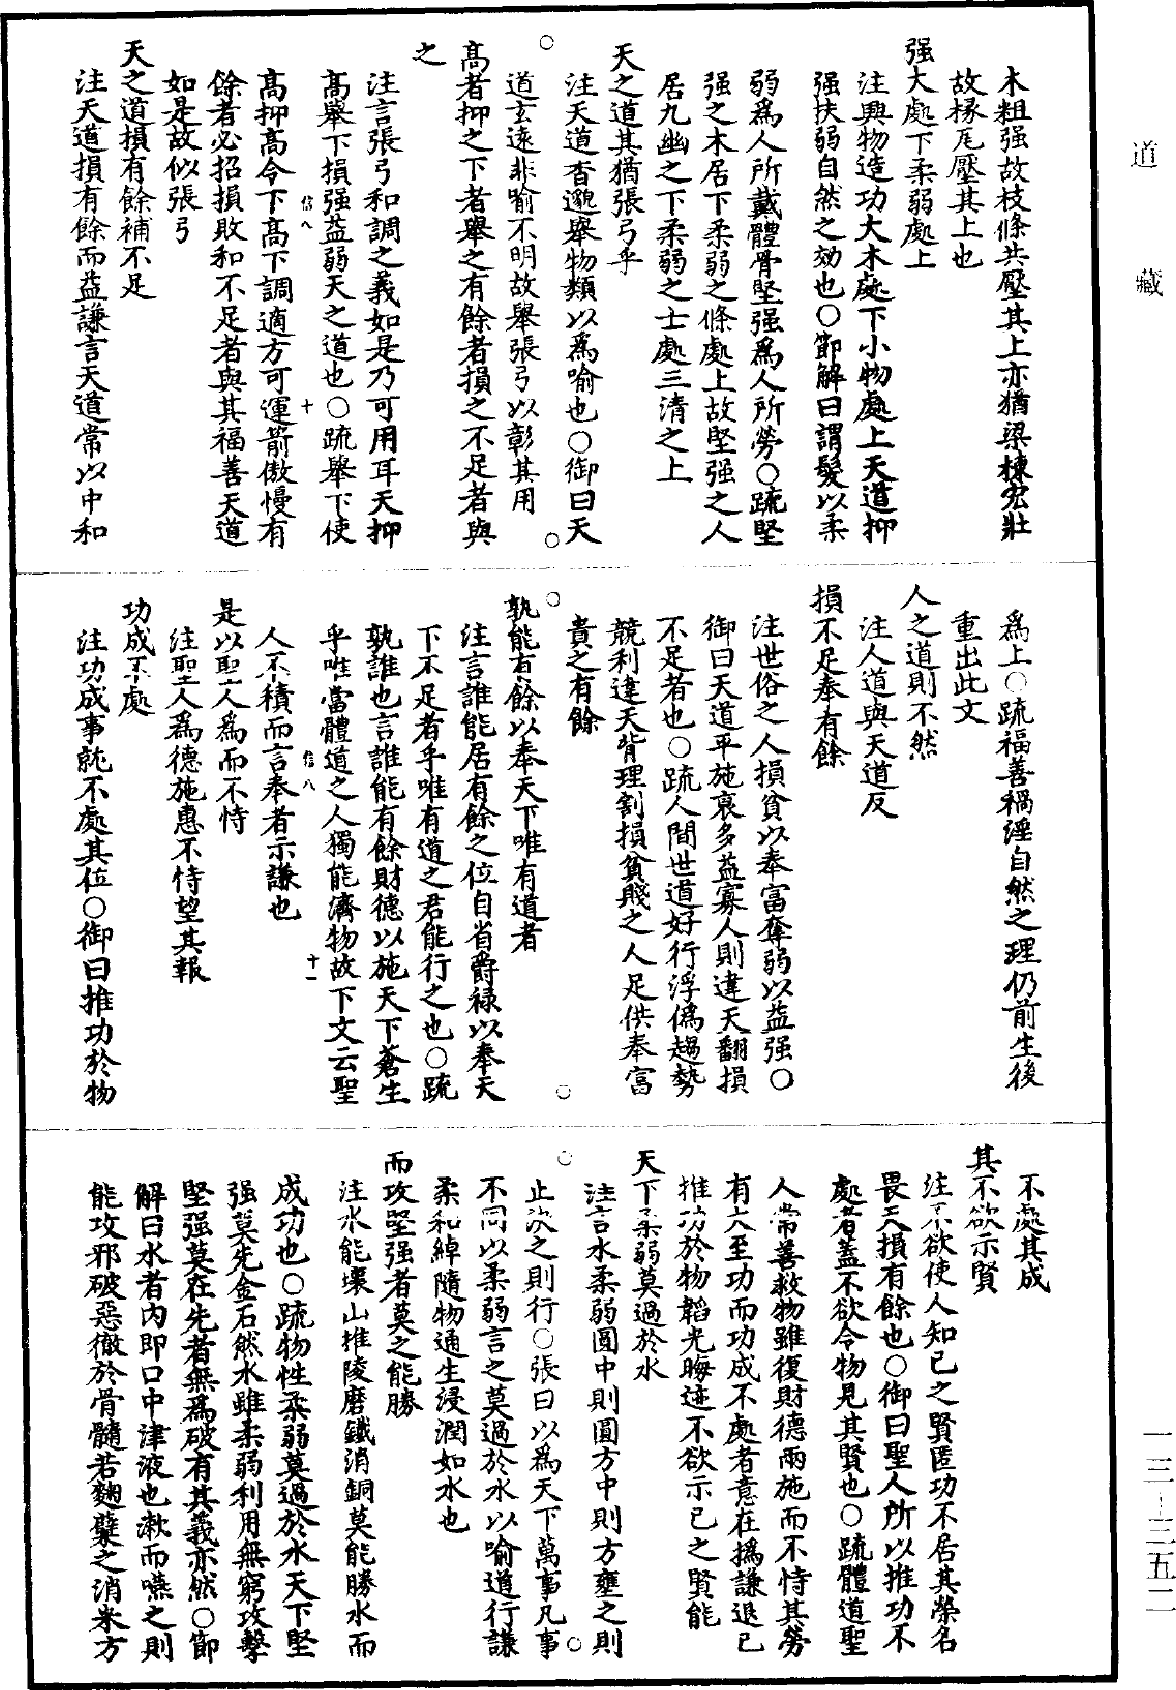 道藏
木粗强故枝條共壓其上亦猶梁棟宏壯
故椽瓦壓其上也
强大處下柔弱處上
注興物造功大木處下小物處上天道抑
强扶弱自然之効也○節解曰謂髮以柔
弱爲人所戴體骨堅强爲人所勞○疏堅
强之木居下柔弱之條處上故堅强之人
居九幽之下柔弱之士處三清之上
天之道其猶張弓乎
注天道杳邈舉物類以爲喻也○御曰天
道玄遠非喻不明故舉張弓以彰其用
高者抑之下者舉之有餘者損之不足者與
之
注言張弓和調之義如是乃可用耳天抑
高舉下損强益弱天之道也○疏舉下使
信八 十
高抑高令下高下調適方可運箭傲慢有
餘者必招損敗和不足者與其福善天道
如是故似張弓
天之道損有餘補不足
注天道損有餘而益謙言天道常以中和
爲上○疏福善禍淫自然之理仍前生後
重出此文
人之道則不然
注人道與天道反
損不足奉有餘
注世俗之人損貧以奉富奪弱以益强○
御曰天道平施裒多益寡人則違天翻損
不足者也○疏人間世道好行浮僞趨勢
競利違天背理割損貧賤之人足供奉富
貴之有餘
孰能有餘以奉天下唯有道者
注言誰能居有餘之位自省爵禄以奉天
下不足者乎唯有道之君能行之也○疏
孰誰也言誰能有餘財德以施天下蒼生
乎唯當體道之人獨能濟物故下文云聖
信八 十一
人不積而言奉者示謙也
是以聖人爲而不恃
注聖人爲德施惠不恃望其報
功成不處
注功成事就不處其位○御曰推功於物
不處其成
其不欲示賢
注不欲使人知已之賢匿功不居其榮名
畏天損有餘也○御曰聖人所以推功不
處者蓋不欲令物見其賢也○疏體道聖
人常善救物雖復財德兩施而不恃其勞
有大至功而功成不處者意在撝謙退已
推功於物韜光晦迹不欲示已之賢能
天下柔弱莫過於水
注言水柔弱圓中則圓方中則方壅之則
止決之則行○張曰以爲天下萬事凡事
不同以柔弱言之莫過於水以喻道行謙
柔和綽隨物通生浸潤如水也
而攻堅强者莫之能勝
注水能壞山推陵磨鐵消銅莫能勝水而
成功也○疏物性柔弱莫過於水天下堅
强莫先金石然水雖柔弱利用無窮攻擊
堅强莫在先者無爲破有其義亦然○節
解曰水者内即口中津液也漱而嚥之則
能攻邪破惡徹於骨髓若麴糵之消米方
一三-三五二